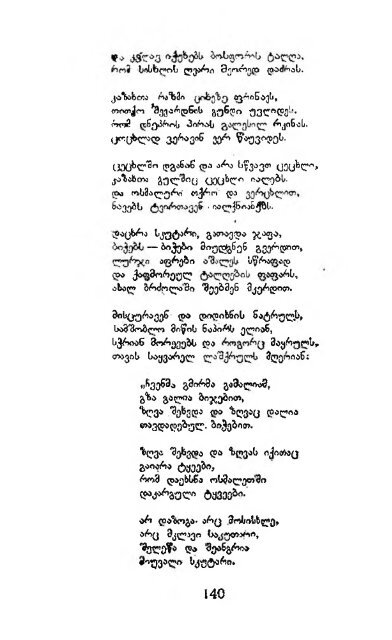 და კვლავ იქუხებს ბოსფორის ტალღა,
რომ სისხლის ღვარი მეორედ დაძრას.
კაზახთა რაზმი ციხეზე ფრინავს,
თითქო შევარდნის გუნდი უვლიდეს.
რომ დნეპრის პირას გალესილ რკინას.
ცოცხლად ვერავინ ვერ წაუვიდეს.
ცეცხლში დგანან და არა სწვავთ ცეცხლი,
კაზახთა გულშიც ცეცხლი იალებს.
და ოსმალური ოქრო და ვერცხლით,
ნავებს ტვირთავენ იალქნიანებს.
დაცხრა სკუტარი, გათავდა ჯაფა,
ბიჭებს — ბიჭები მიუდგნენ გვერდით,
ლურჯი აფრები აშალეს სწრაფად
და ქაფმორეულ ტალღების ფაფარს,
ახალ ბრძოლაში შეებმენ მკერდით.
მისცურავენ და დიდიხნის ნატრულს,
სამშობლო მიწის ნაპირს ელიან,
სჭრიან მორევებს და როგორც მაყრულს,
თავის საყვარელ ლაშქრულს მღერიან:
„ჩვენმა გმირმა გამალიამ,
გზა გალია ბიჯებით,
ზღვა შეხვდა და ზღვაც დალია
თავდადებულ ბიჭებით.
ზღვა შეხვდა და ზღვას იქითაც
გაიარა ტყეები,
რომ დაეხსნა ოსმალეთში
დაკარგული ტყვეები.
არ დაზოგა არც მოსისხლე,
არც მკლავი საკუთარი,
შელეწა და შეანგრია
მიუვალი სკუტარი.
140